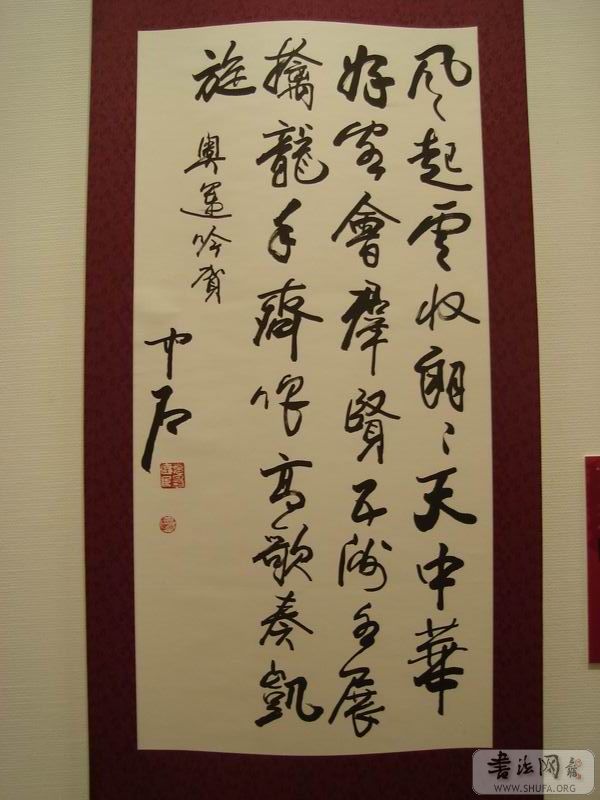 风起雲收朗々天中華
好客會羣賢五洲各展
擒龍手齊唱高歌奏凱
旋
奥運吟賀
中石
书法网
WWW.SHUFA.ORG